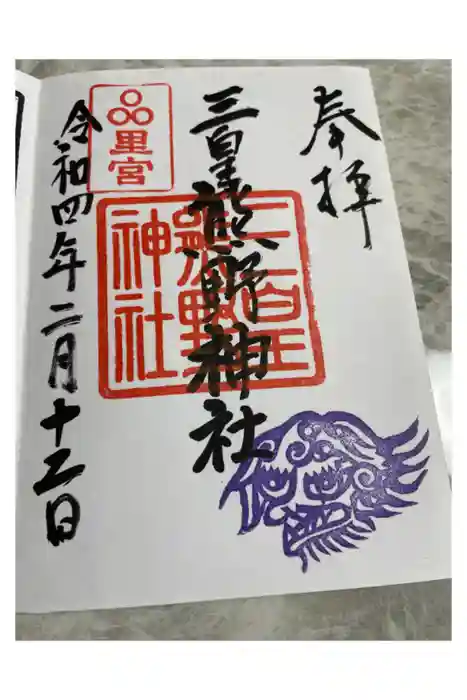 奉拝
三皇熊野神社
三皇
熊野
神社
里宮
令和四年二月十二日